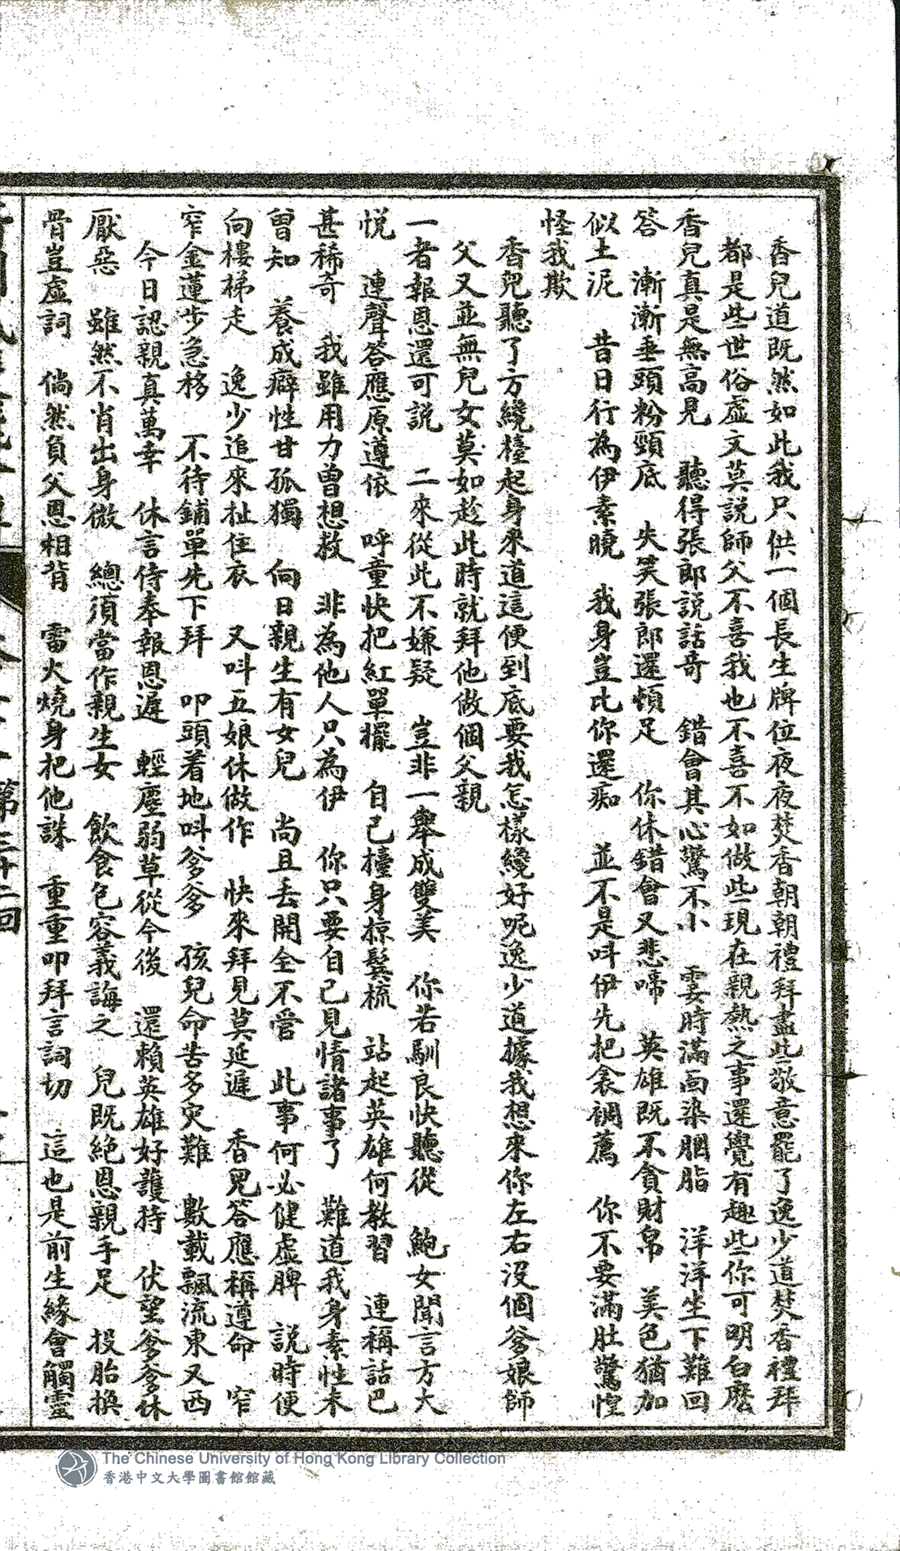 香兒道既然如此我只供一個長生牌位夜夜焚香朝朝禮拜盡此敬意罷了逸少道焚香禮拜
都是些世俗虛文莫說師父不喜我也不喜不如做些現在親熱之事還覺有趣些你可明白麽
香兒真是無高見　聽得張郎說話奇　錯會其心驚不小　霎時滿面染胭脂　洋洋坐下難回
答　漸漸垂頭粉頸底　失笑張郎還頓足　你休錯會又悲啼　英雄既不貪財帛　美色猶加
似土泥　昔日行為伊素曉　我身豈比你還痴　並不是呌伊先把衾裯薦　你不要滿肚驚惶
怪我欺
香兒聽了方纔擡起身來道這便到底要我怎樣纔好呢逸少道據我想來你左右沒個爹娘師
父又並無兒女莫如趁此時就拜他做個父親
一者報恩還可説　二來從此不嫌疑　豈非一舉成雙美　你若馴良快聽從　鮑女聞言方大
悦　連聲答應原遵依　呼童快把紅單擺　自己擡身掠鬂梳　站起英雄何教習　連稱話巴
甚稀奇　我雖用力曾想救　非為他人只為伊　你只要自己見情諸事了　難道我身素性未
曾知　養成癖性甘孤獨　向日親生有女兒　尚且丢開全不管　此事何必健虛脾　説時便
向樓梯走　逸少追來扯住衣　又呌五娘休做作　快來拜見莫延遲　香兒答應稱遵命　窄
窄金蓮步急移　不待鋪單先下拜　叩頭着地呌爹爹　孩兒命苦多灾難　數載飄流東又西
今日認親真萬幸　休言侍奉報恩遲　輕塵弱草從今後　還賴英雄好護持　伏望爹爹休
厭惡　雖然不肖出身微　總須當作親生女　飲食包容義誨之　兒既絶恩親手足　投胎換
骨豈虛詞　倘然負父恩相背　雷火燒身把他誅　重重叩拜言詞切　這也是前生緣會觸靈
第三十二回
The Chinese University of Hong Kong Library Collection
香港中文大學圖書館館藏